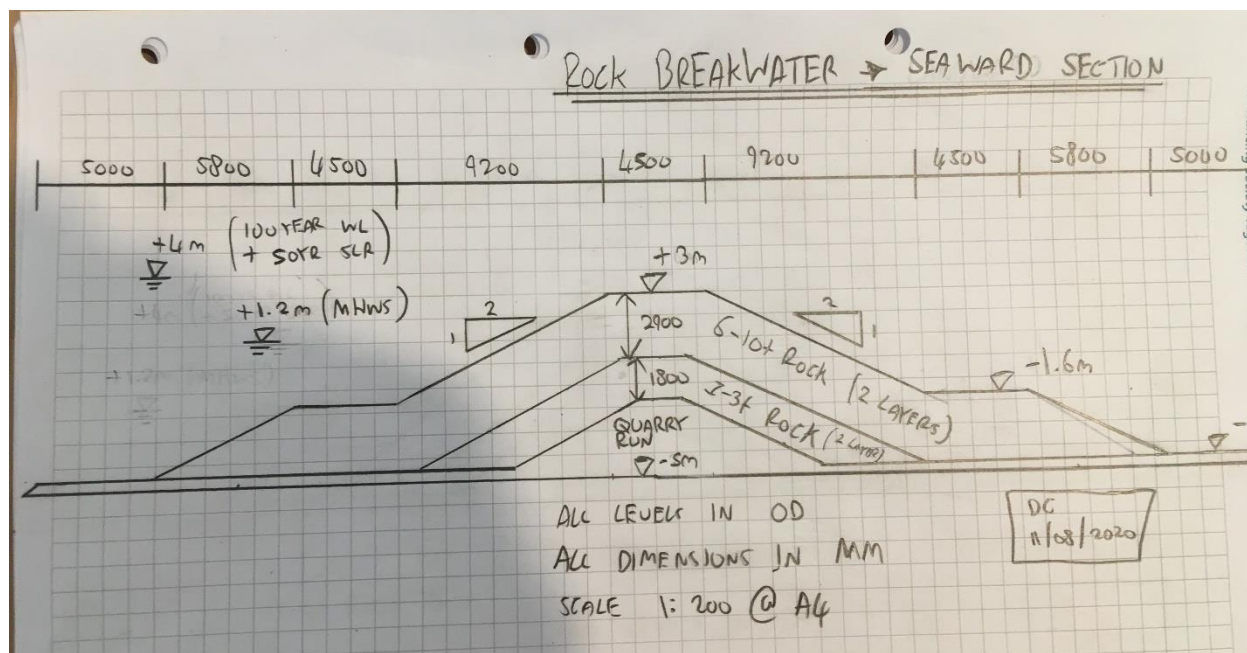 ROCK BREAKWATER → SEAWARD SECTION
5000 5800 4500 9200 4500 9200 4500 5800 5000
+4m (100 YEAR WL
+ 50YR SLR)
+3m
+1.2m (MHWS)
2
1
2
1
2900
6-10t ROCK (2 LAYERS)
-1.6m
1800
1-3t ROCK (2 LAYER)
QUARRY
RUN
-5m
-
ALL LEVELS IN OD
ALL DIMENSIONS IN MM
SCALE 1:200 @ A4
DC
11/08/2020